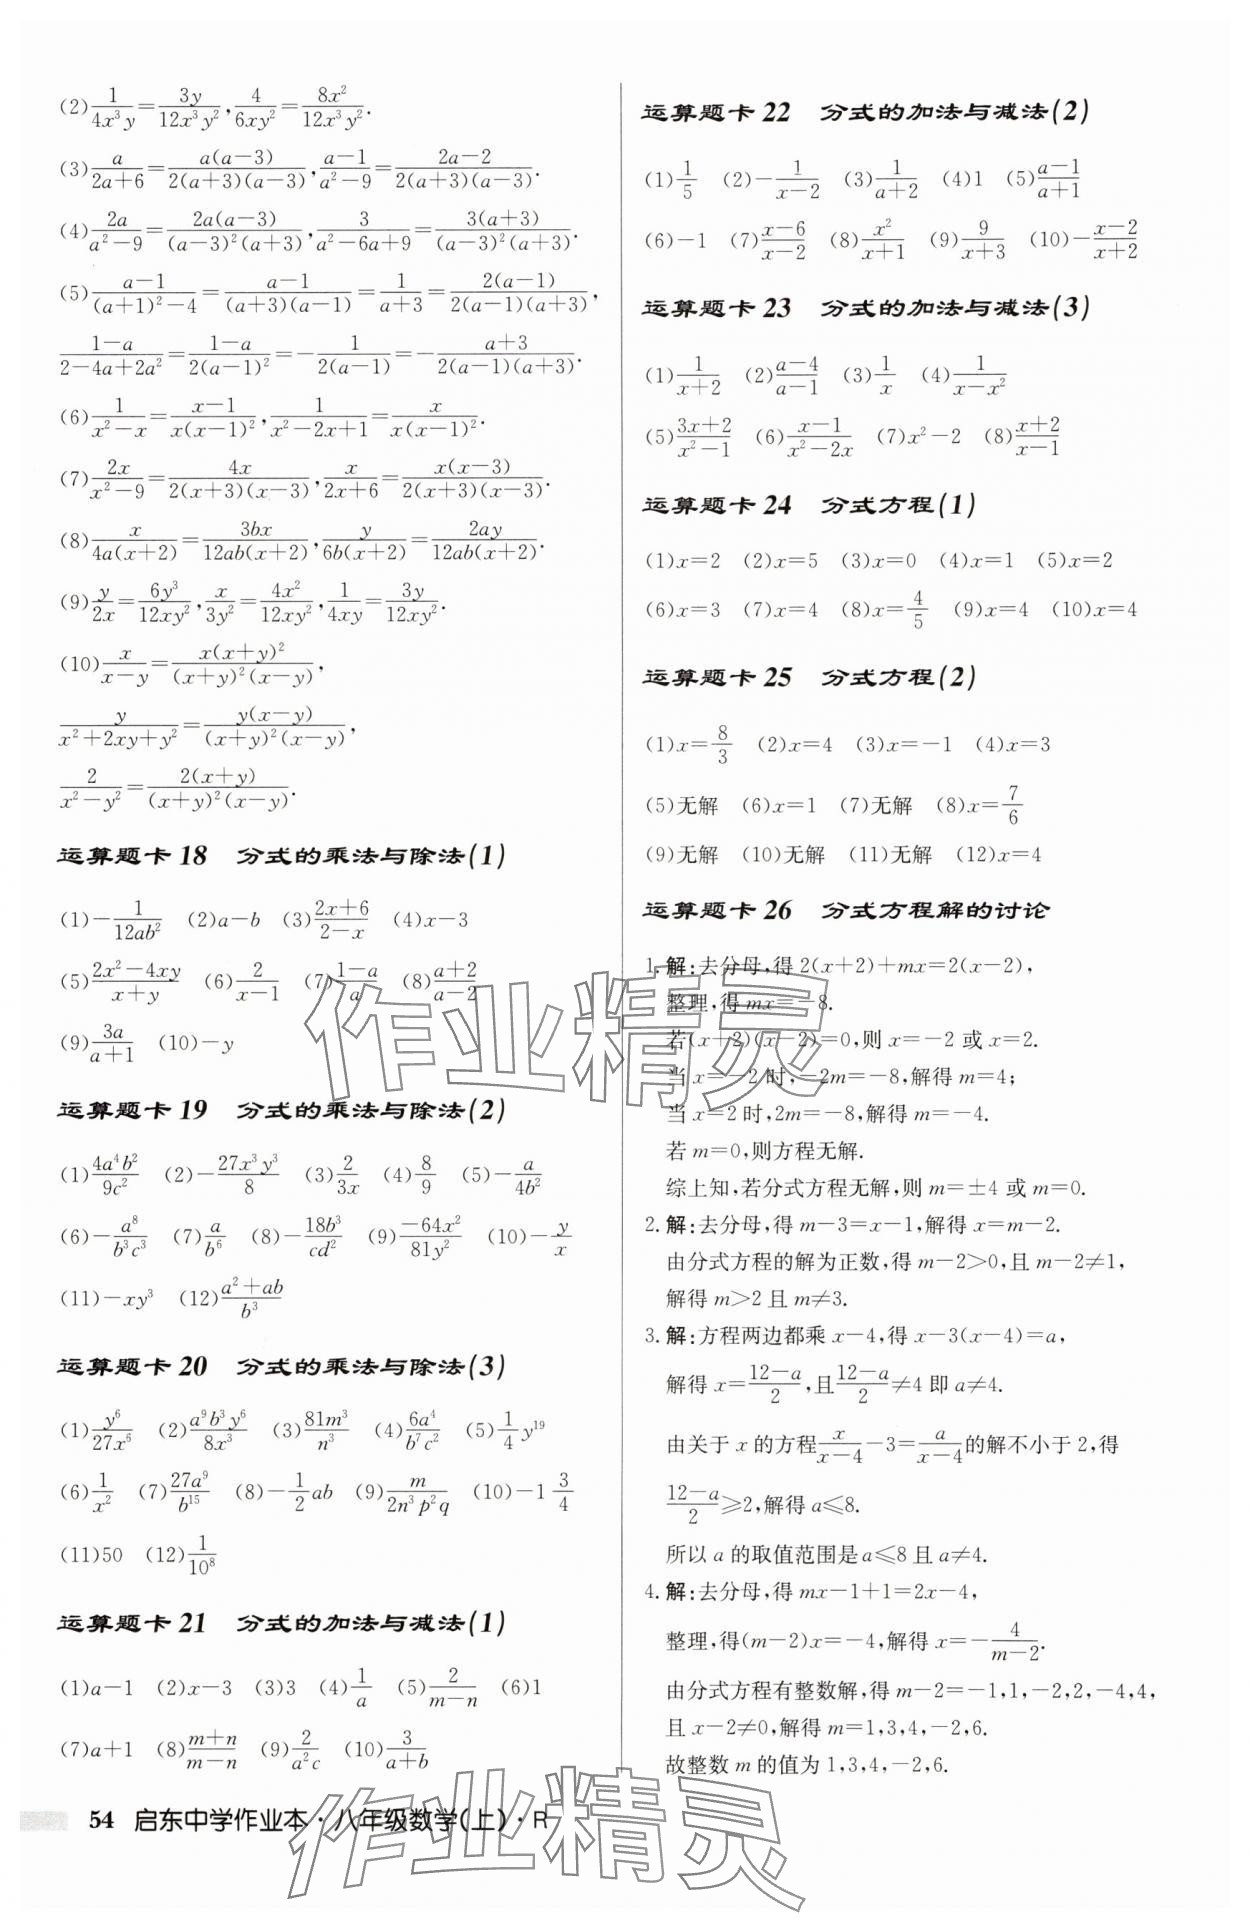 (2) 1/(4x³y)=3y/(12x³y²),4/(6xy²)=8x²/(12x³y²).
(3) a/(2a+6)=a(a-3)/(2(a+3)(a-3)),(a-1)/(a²-9)=(2a-2)/(2(a+3)(a-3)).
(4) 2a/(a²-9)=2a(a-3)/((a-3)²(a+3)),3/(a²-6a+9)=3(a+3)/((a-3)²(a+3)).
(5) (a-1)/((a+1)²-4)=(a-1)/((a+3)(a-1))=1/(a+3)=2(a-1)/(2(a-1)(a+3)),
(1-a)/(2-4a+2a²)=(1-a)/(2(a-1)²)=-1/(2(a-1))=-(a+3)/(2(a-1)(a+3)).
(6) 1/(x²-x)=(x-1)/(x(x-1)²),1/(x²-2x+1)=x/(x(x-1)²).
(7) 2x/(x²-9)=4x/(2(x+3)(x-3)),x/(2x+6)=x(x-3)/(2(x+3)(x-3)).
(8) x/(4a(x+2))=3bx/(12ab(x+2)),y/(6b(x+2))=2ay/(12ab(x+2)).
(9) y/(2x)=6y³/(12xy²),x/(3y²)=4x²/(12xy²),1/(4xy)=3y/(12xy²).
(10) x/(x-y)=x(x+y)²/((x+y)²(x-y)),
y/(x²+2xy+y²)=y(x-y)/((x+y)²(x-y)),
2/(x²-y²)=2(x+y)/((x+y)²(x-y)).
运算题卡 18 分式的乘法与除法(1)
(1)-1/(12ab²) (2)a-b (3)(2x+6)/(2-x) (4)x-3
(5)(2x²-4xy)/(x+y) (6)2/(x-1) (7)(1-a)/a (8)(a+2)/(a-2)
(9)3a/(a+1) (10)-y
运算题卡 19 分式的乘法与除法(2)
(1)4a⁴b²/(9c²) (2)-27x³y³/8 (3)2/(3x) (4)8/9 (5)-a/(4b²)
(6)-a⁸/(b³c³) (7)a/b⁶ (8)-18b³/(cd²) (9)-64x²/(81y²) (10)-y/x
(11)-xy³ (12)(a²+ab)/b³
运算题卡 20 分式的乘法与除法(3)
(1)y⁶/(27x⁶) (2)a⁹b³y⁶/(8x³) (3)81m³/n³ (4)6a⁴/(b⁷c²) (5)1/4 y¹⁹
(6)1/x² (7)27a⁹/b¹⁵ (8)-1/2 ab (9)m/(2n³p²q) (10)-1 3/4
(11)50 (12)1/10⁸
运算题卡 21 分式的加法与减法(1)
(1)a-1 (2)x-3 (3)3 (4)1/a (5)2/(m-n) (6)1
(7)a+1 (8)(m+n)/(m-n) (9)2/(a²c) (10)3/(a+b)
54 启东中学作业本·八年级数学(上)·R
运算题卡 22 分式的加法与减法(2)
(1)1/5 (2)-1/(x-2) (3)1/(a+2) (4)1 (5)(a-1)/(a+1)
(6)-1 (7)(x-6)/(x-2) (8)x²/(x+1) (9)9/(x+3) (10)-(x-2)/(x+2)
运算题卡 23 分式的加法与减法(3)
(1)1/(x+2) (2)(a-4)/(a-1) (3)1/x (4)1/(x-x²)
(5)(3x+2)/(x²-1) (6)(x-1)/(x²-2x) (7)x²-2 (8)(x+2)/(x-1)
运算题卡 24 分式方程(1)
(1)x=2 (2)x=5 (3)x=0 (4)x=1 (5)x=2
(6)x=3 (7)x=4 (8)x=4/5 (9)x=4 (10)x=4
运算题卡 25 分式方程(2)
(1)x=8/3 (2)x=4 (3)x=-1 (4)x=3
(5)无解 (6)x=1 (7)无解 (8)x=7/6
(9)无解 (10)无解 (11)无解 (12)x=4
运算题卡 26 分式方程解的讨论
1.解:去分母,得2(x+2)+mx=2(x-2),
整理,得mx=-8.
若(x+2)(x-2)=0,则x=-2或x=2.
当x=-2时,-2m=-8,解得m=4;
当x=2时,2m=-8,解得m=-4.
若m=0,则方程无解.
综上知,若分式方程无解,则m=±4或m=0.
2.解:去分母,得m-3=x-1,解得x=m-2.
由分式方程的解为正数,得m-2>0,且m-2≠1,
解得m>2且m≠3.
3.解:方程两边都乘x-4,得x-3(x-4)=a,
解得x=(12-a)/2,且(12-a)/2≠4即a≠4.
由关于x的方程x/(x-4)-3=a/(x-4)的解不小于2,得
(12-a)/2≥2,解得a≤8.
所以a的取值范围是a≤8且a≠4.
4.解:去分母,得mx-1+1=2x-4,
整理,得(m-2)x=-4,解得x=-4/(m-2).
由分式方程有整数解,得m-2=-1,1,-2,2,-4,4,
且x-2≠0,解得m=1,3,4,-2,6.
故整数m的值为1,3,4,-2,6.
作业精灵
作业精灵